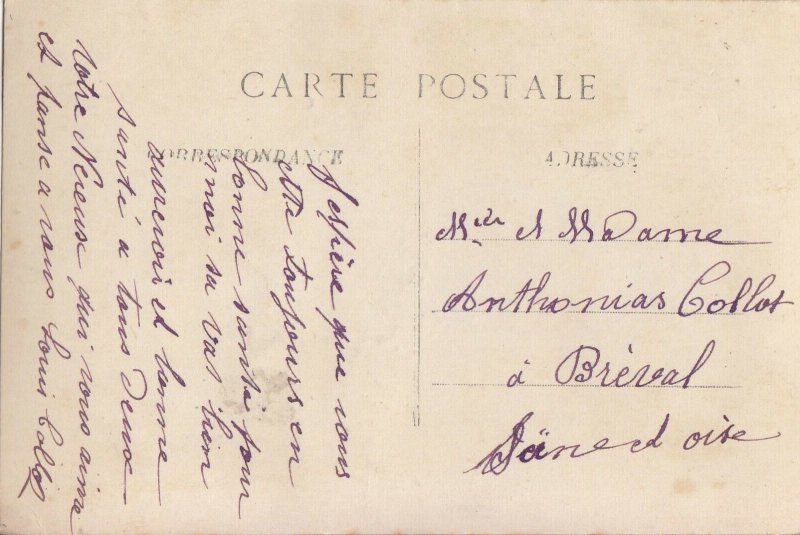 CARTE POSTALE
CORRESPONDANCE
ADRESSE
J'espère que vous
ette toujours en
bonne santé pour
moi sa vas bien
aurevoir et bonne
santé a tous deux
votre Neveux qui vous aime
et panse a vous Louis Collot
Mr et Madame
Anthonias Collot
à Bréval
Seine et oise